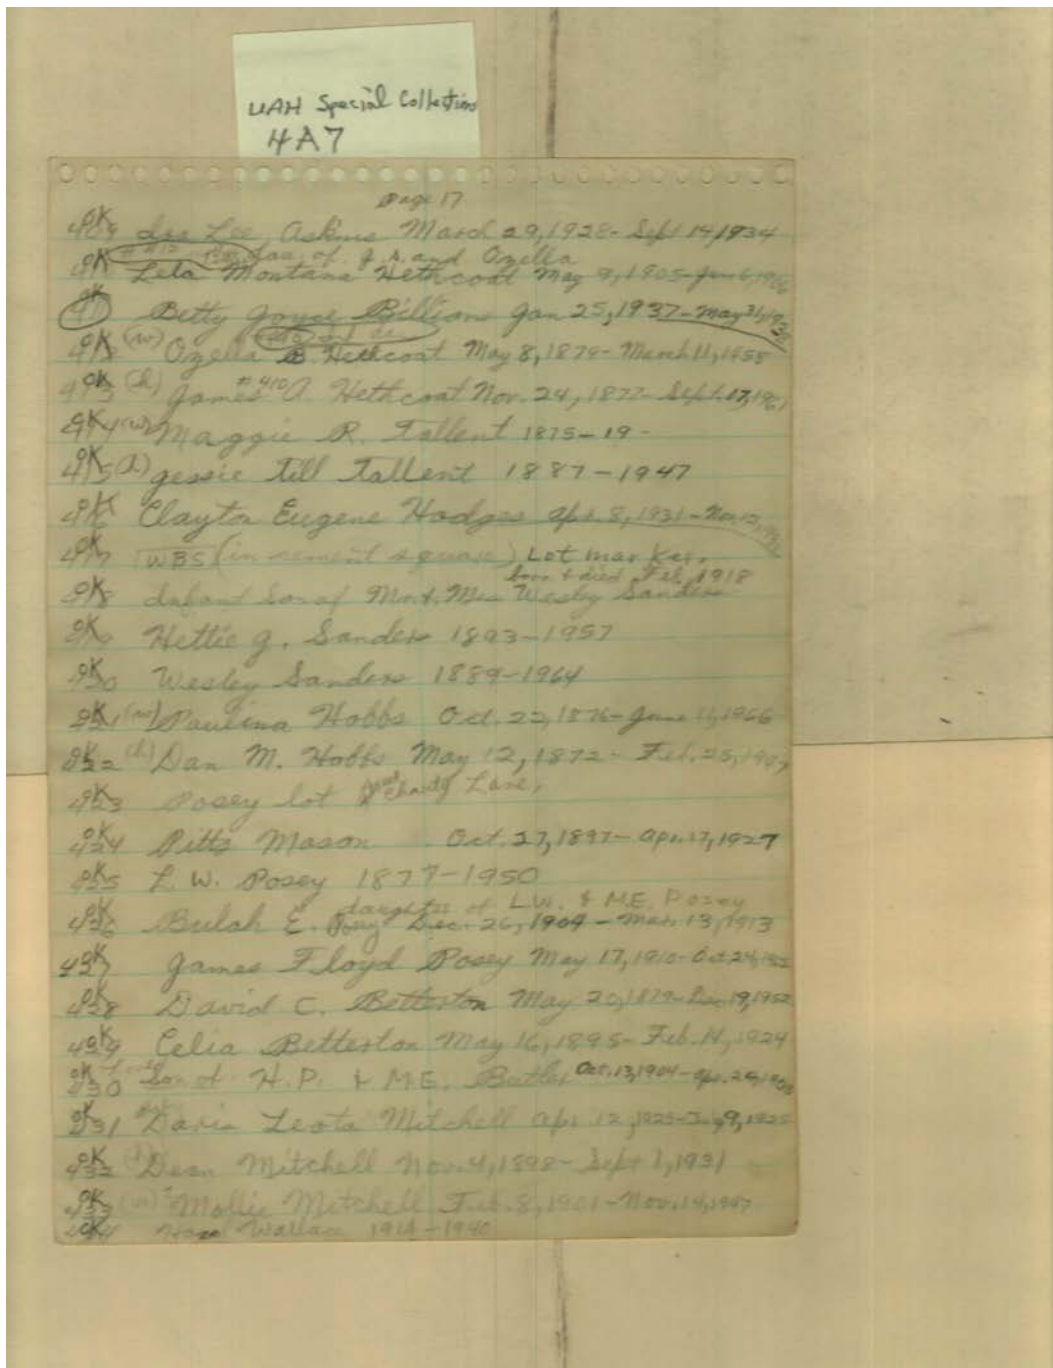 UAH Special Collections
4A7
Page 17
OK 409 Lee Askins March 29, 1928 - Sept 14, 1934
of J.A. and Ozella
OK Leta Montana Hethcoat May 9, 1905 -
OK 411 Betty Joyce Billions Jan 25, 1937 - May 31,
OK 412 (w) Ozella B. Hethcoat May 8, 1879 - March 11, 1955
OK 413 (h) James A. Hethcoat Nov. 24, 1877 - Sept. 17,
#410
OK 414 (w) Maggie R. Tallent 1875 - 19 -
OK 415 (h) Jessie Till Tallent 1887 - 1947
OK 416 Clayton Eugene Hodges Apr. 8, 1931 - Nov.
OK 417 WBS (in cement square) Lot marker.
born & died Feb. 1918
OK 418 Infant Son of Mr. & Mrs Wesley Sanders
OK Hettie J. Sanders 1893 - 1957
OK 420 Wesley Sanders 1889 - 1964
OK 421 (w) Paulina Hobbs Oct. 22, 1876 - June 11, 1966
OK 422 (h) Dan M. Hobbs May 12, 1872 - Feb. 25,
OK 423 Posey lot Charity Lane,
OK 424 Pitts Mason Oct. 27, 1897 - Apr. 17, 1927
OK 425 L. W. Posey 1877 - 1950
daughter of L.W. & M.E. Posey
OK 426 Bulah E. Posey Dec. 26, 1909 - Mar. 13, 1913
OK 427 James Floyd Posey May 17, 1910 - Oct 24,
OK 428 David C. Betterton May 20, 1879 - Dec 19, 1952
OK 429 Celia Betterton May 16, 1895 - Feb. 14, 1924
OK 430 Son of H.P. & M.E. Butler Oct. 13, 1904 - Apr. 24,
OK 431 Daris Leota Mitchell Apr. 12, 1925 - 9, 1925
OK 432 (h) Dean Mitchell Nov. 4, 1898 - Sept 1, 1931
OK 433 (w) Mollie Mitchell Feb. 8, 1901 - Nov. 14, 1947
OK 434 Wallace 1914 - 1940